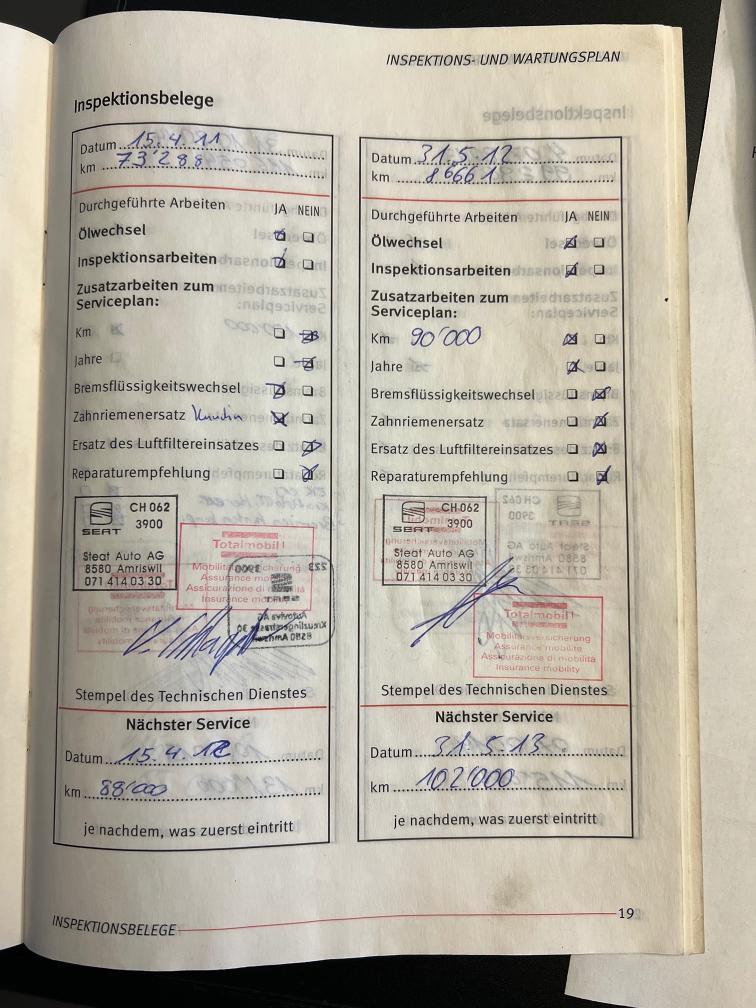 INSPEKTIONS- UND WARTUNGSPLAN
Inspektionsbelege
Datum 15.4.11
km 73'288
Durchgeführte Arbeiten JA NEIN
Ölwechsel
Inspektionsarbeiten
Zusatzarbeiten zum
Serviceplan:
Km
Jahre
Bremsflüssigkeitswechsel
Zahnriemenersatz
Ersatz des Luftfiltereinsatzes
Reparaturempfehlung
SEAT
CH 062
3900
Steat Auto AG
8580 Amriswil
071 414 03 30
Totalmobil!
Mobilitätsversicherung
Assurance mobilité
Assicurazione di mobilità
Insurance mobility
Stempel des Technischen Dienstes
Nächster Service
Datum 15.4.12
km 88'000
je nachdem, was zuerst eintritt
Datum 31.5.12
km 86661
Durchgeführte Arbeiten JA NEIN
Ölwechsel
Inspektionsarbeiten
Zusatzarbeiten zum
Serviceplan:
Km 90'000
Jahre
Bremsflüssigkeitswechsel
Zahnriemenersatz
Ersatz des Luftfiltereinsatzes
Reparaturempfehlung
SEAT
CH 062
3900
Steat Auto AG
8580 Amriswil
071 414 03 30
Totalmobil!
Mobilitätsversicherung
Assurance mobilité
Assicurazione di mobilità
Insurance mobility
Stempel des Technischen Dienstes
Nächster Service
Datum 31.5.13.
km 102'000
je nachdem, was zuerst eintritt
INSPEKTIONSBELEGE
19